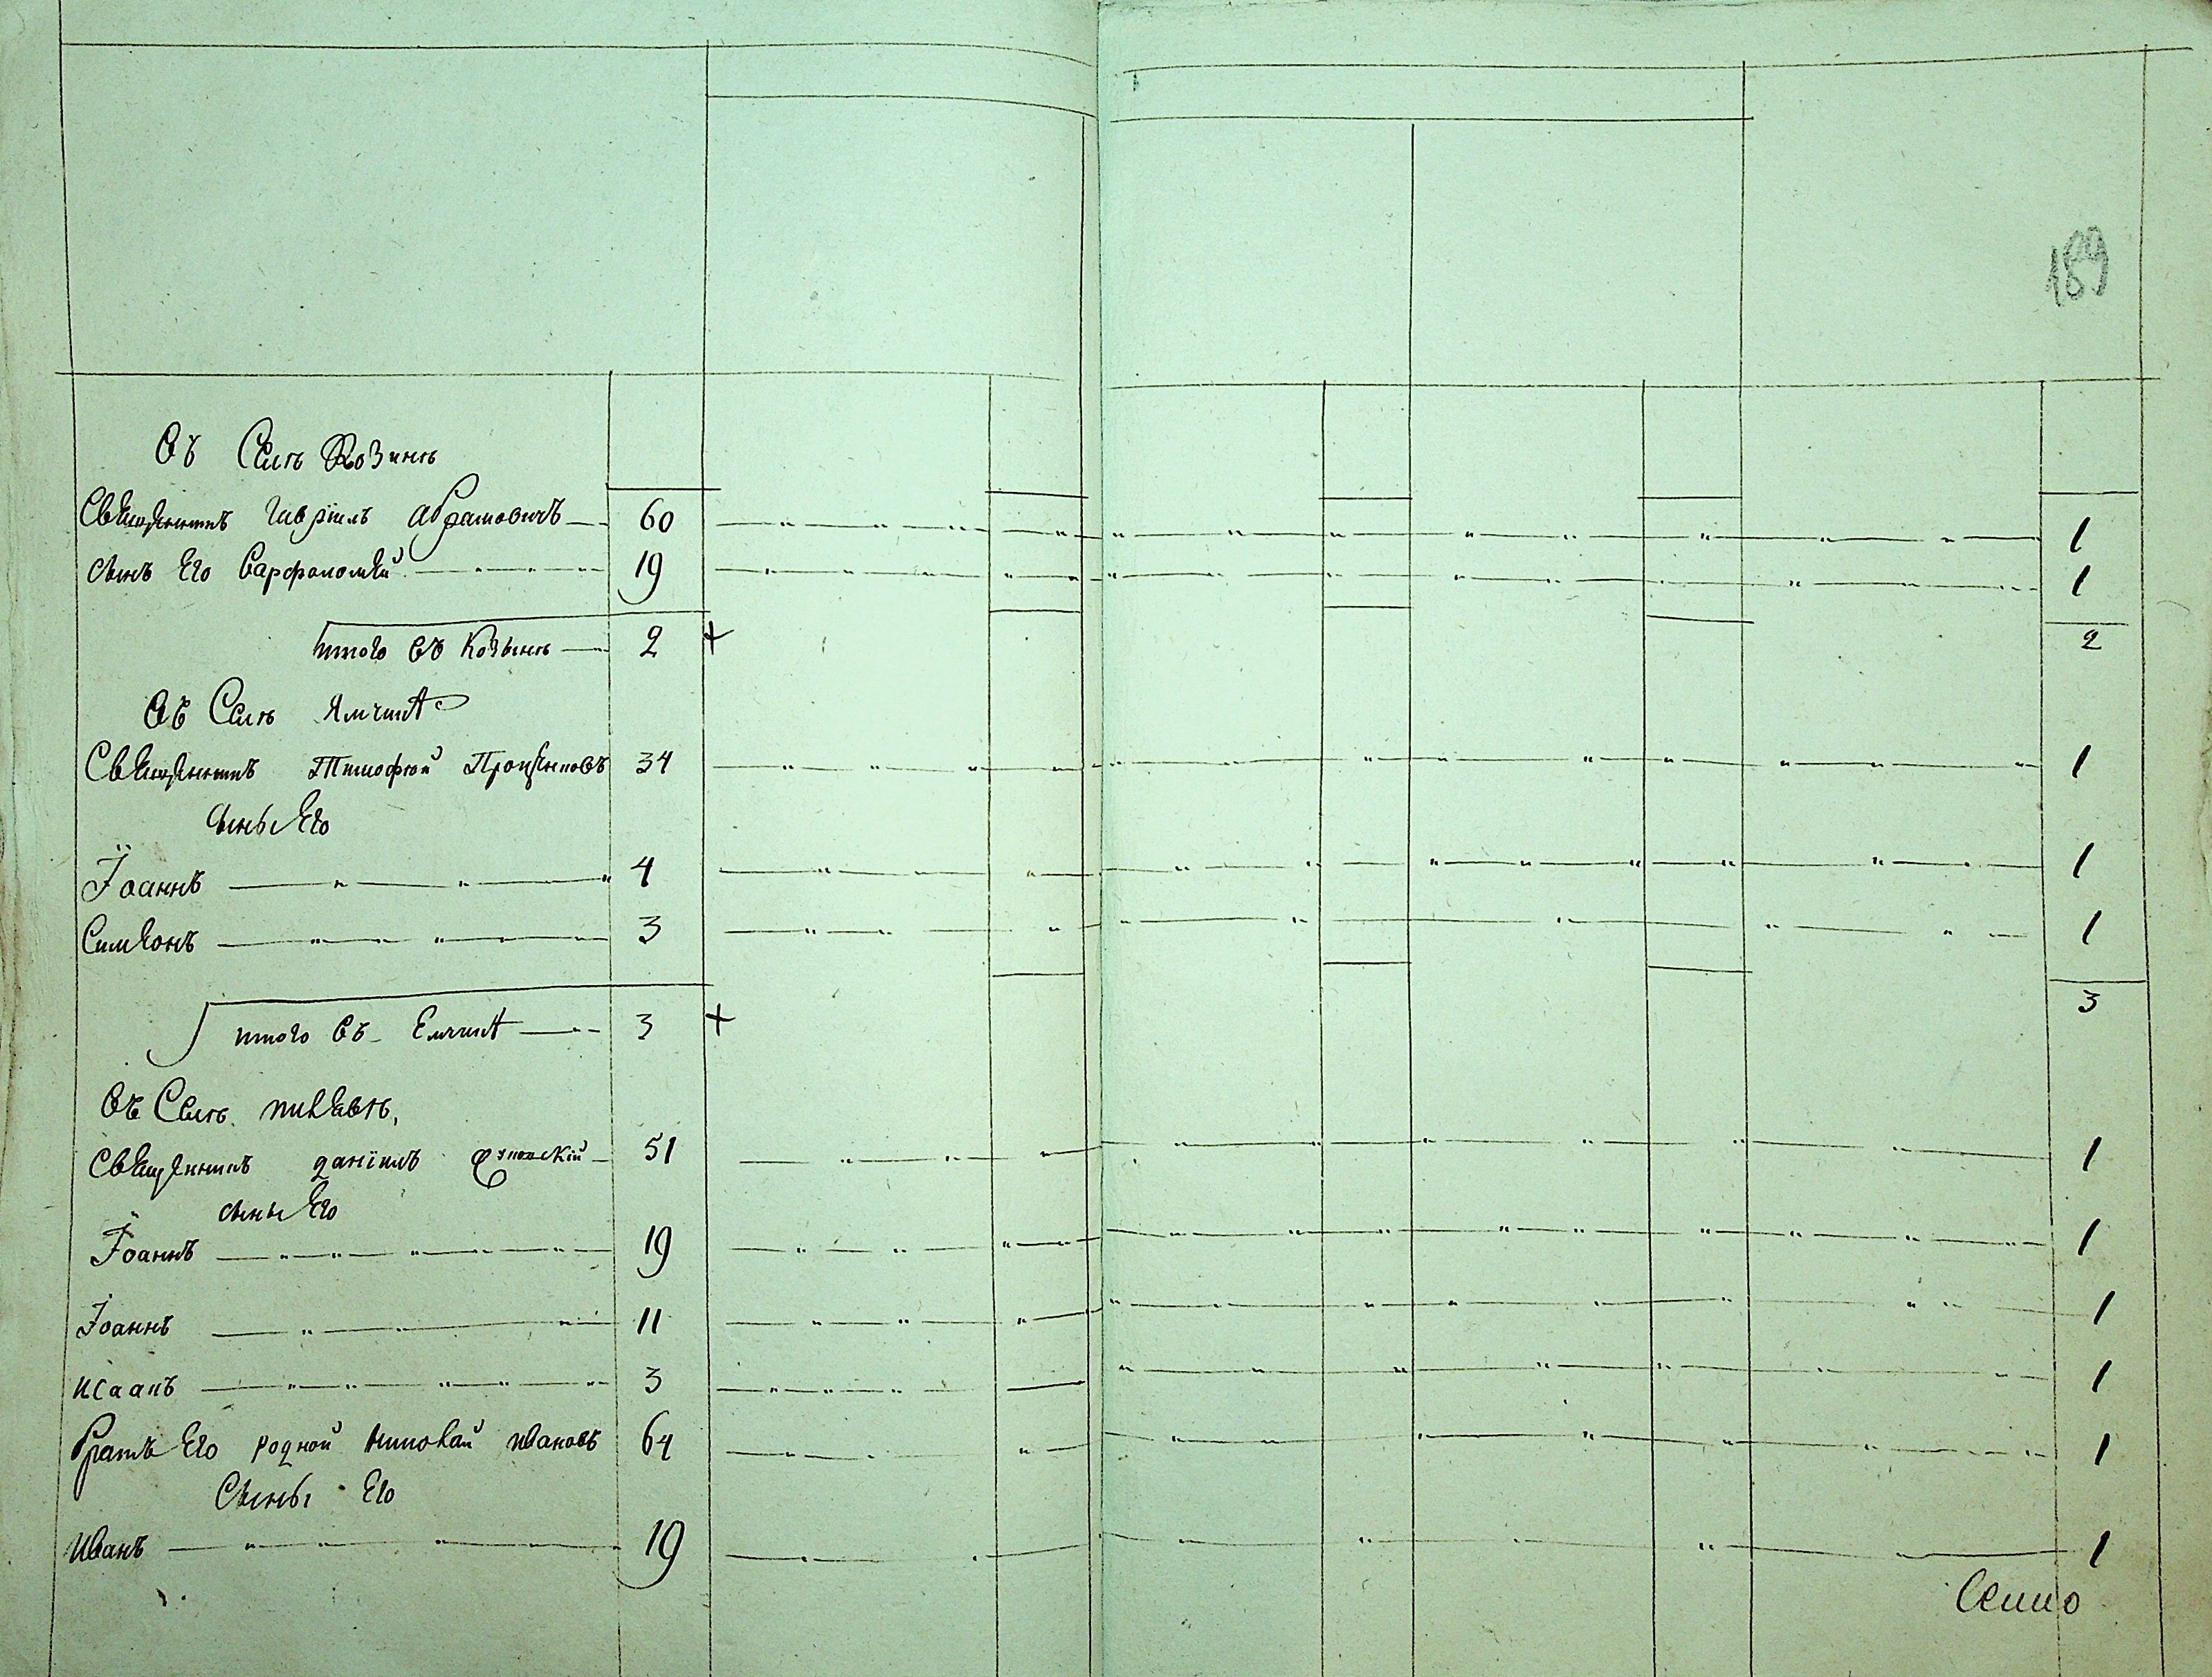 189
Въ Селѣ Козинѣ
Священникъ Гаврїилъ Абрамовичъ 60 1
сынъ Его Варфоломей 19 1
итого въ Козынѣ 2 + 2
Въ Селѣ
Священникъ Тимофей Проценковъ 34 1
сыны Его
Їоаннъ 4 1
Симеонъ 3 1
итого въ 3 + 3
Въ Селѣ пивцавѣ,
Священникъ данїилъ 51 1
сыны Его
Їоаннъ 19 1
Їоаннъ 11 1
исаакъ 3 1
братъ Его родной николай ивановъ 64 1
Сыны Его
иванъ 19 1